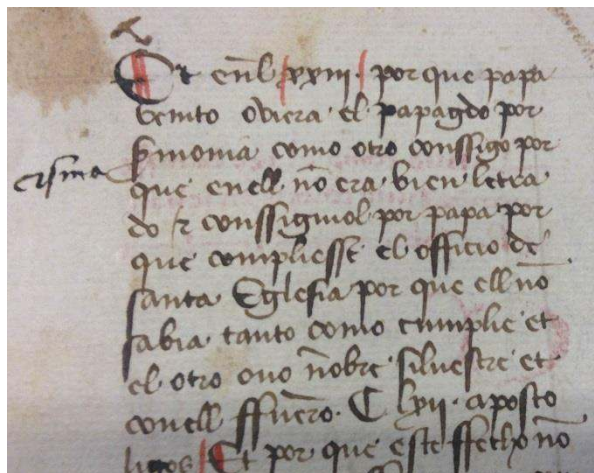 Et enl xxiii. por que papa
benito oviera el papagdo por
symonia como otro conssigo por
crisma
que enell nō era bien letra
do et conssigniol por papa por
que compliesse el officio de
santa Eglesia por que ell nō
sabia tanto como cumplie et
el otro ovo nōbre siluestre et
conell ffuerō. C lxii. aposto
ligos Et por que este ffecho nō